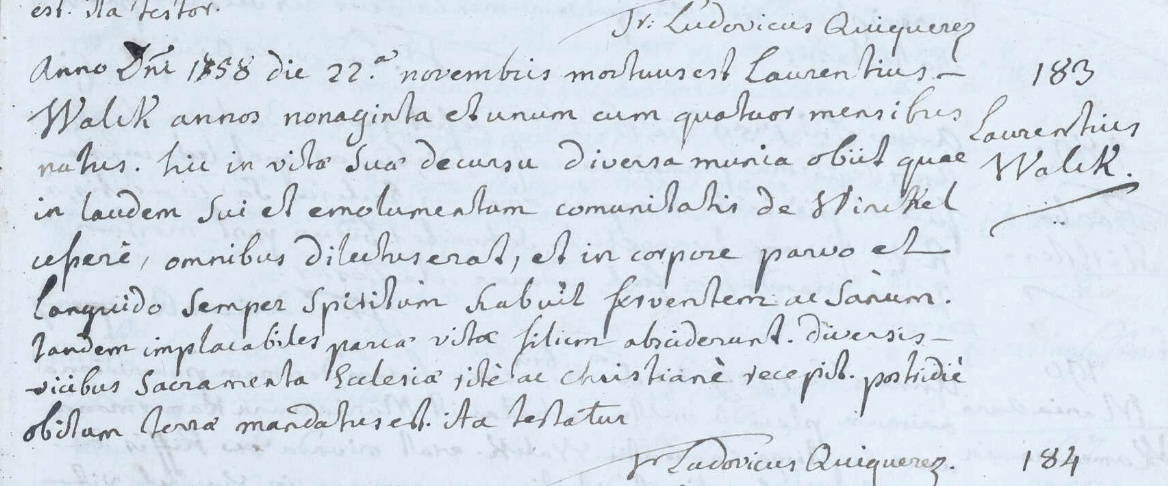 est. ita testor.
fr: Ludovicus Quiquerez
Anno Dni 1758 die 22.a novembris mortuus est Laurentius –
183
Walck annos nonaginta et unum cum quatuor mensibus
Laurentius
natus. hic in vitæ suæ decursu diversa munia obiit quae
Walck.
in laudem sui et emolumentum comunitatis de Winckel
cessere, omnibus dilectus erat, et in corpore parvo et –
languido semper spiritum habuit ferventem ac sanum.
tandem implacabiles parcæ vitæ filium absciderunt. diversis –
vicibus sacramenta Ecclesiæ ritè ac christianè recepit. postridiè
obitum terræ mandatus est. ita testatur
fr Ludovicus Quiquerez.
184